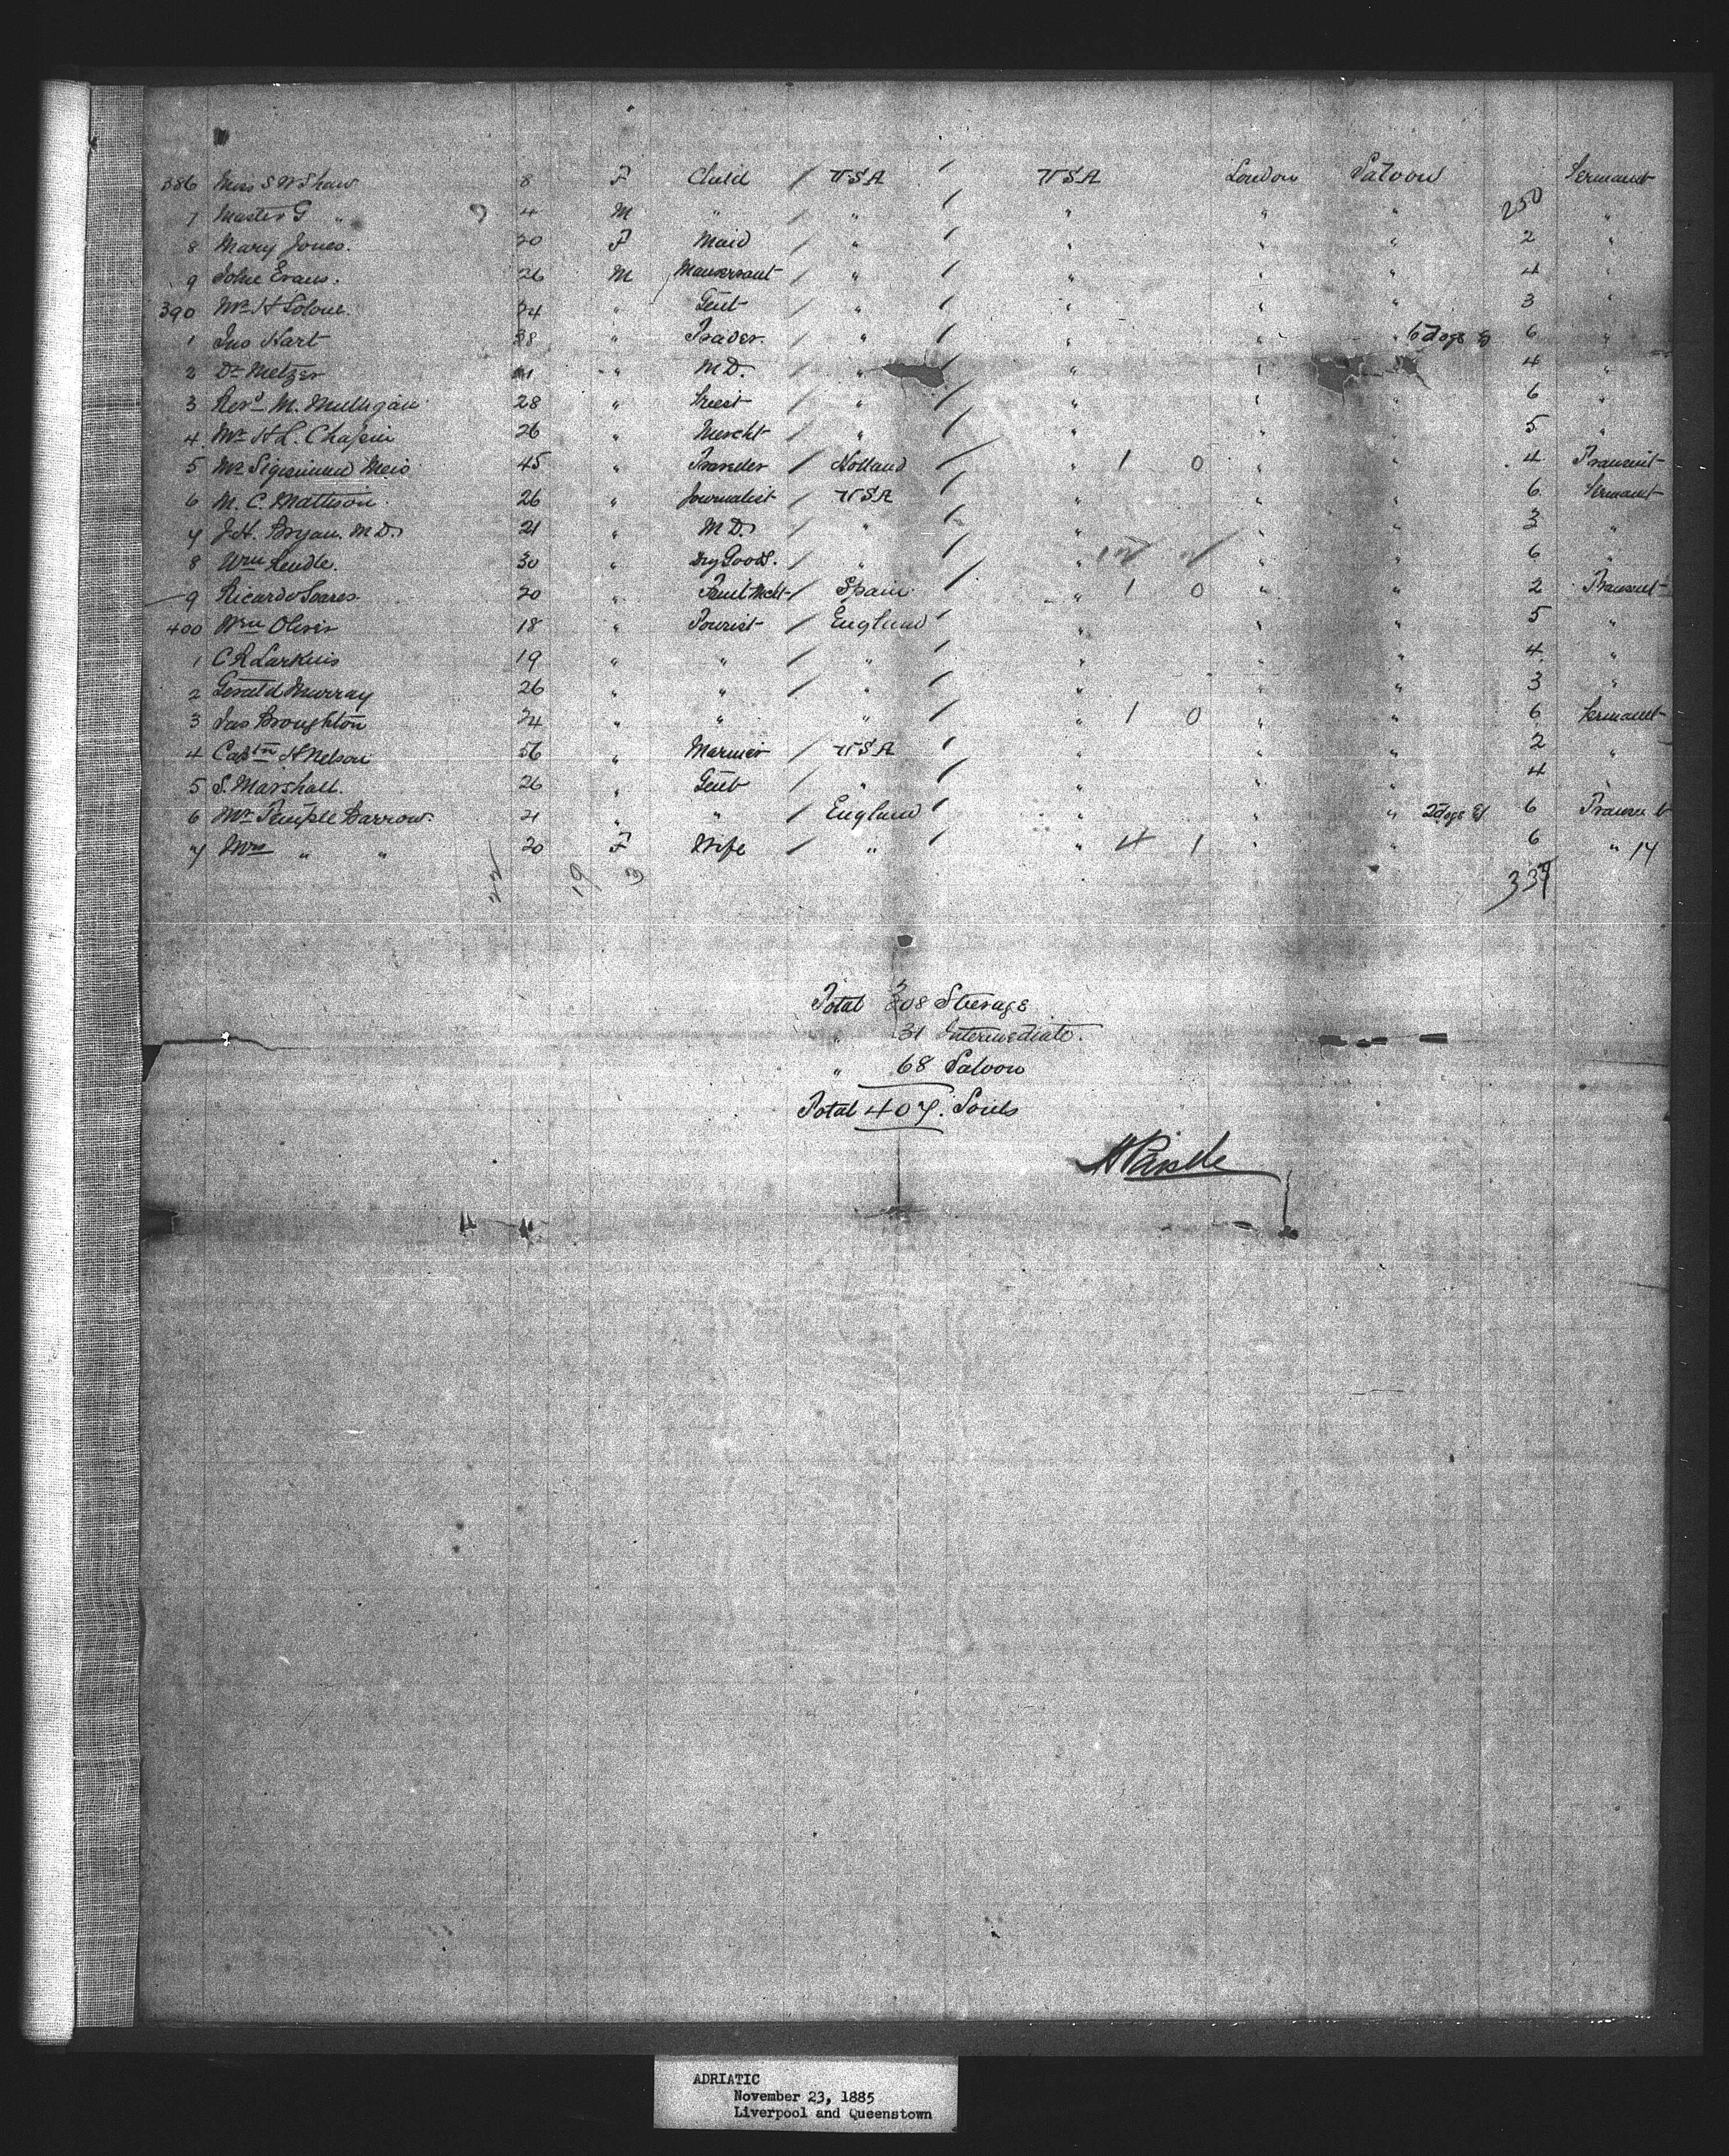 386 Miss S W Shaw 8 F Child / USA / USA London Saloon Permanent
7 Master G " 4 M " / " / " " " 250 "
8 Mary Jones. 20 F Maid / " / " " " 2 "
9 John Evans. 26 M Manservant / " / " " " 4 "
390 Mr H 34 " Gent / " / " " " 3 "
1 Jno Hart 38 " Trader. / " / " " " 6 Dogs 6 "
2 Dr Metzer " M.D. / " / " " 4 "
3 Revd M. Mulligan 28 " Priest / " / " " " 6 "
4 Mr H L. Chapin 26 " Mercht / " / " " " 5 "
5 Mr Sigismund 45 " / Holland / " 1 0 " " 4 Transit
6 M. C. Mattison. 26 " Journalist / USA / " " " 6 Permanent
7 J H. Bryan. M.D. 21 " M D. / " / " " " 3 "
8 Wm Rendle. 30 " Dry Goods. / " / " " " 6 "
9 Ricardo Soares. 20 " Fruit Mcht / Spain / " 1 0 " " 2 Transit
400 Wm Oliver 18 " Tourist / England / " " " 5 "
1 C R Larkins 19 " " / " / " " " 4 "
2 Gerald Murray 26 " " / " / " " " 3 "
3 Jas Broughton 34 " " / " / " 1 0 " " 6 Permanent
4 Captn H Nelson 56 " Mariner / USA / " " " 2 "
5 S. Marshall. 26 " Gent / " / " " " 4 "
6 Mr Temple Barrow. 21 " " / England / " " " 2 Dogs 6 Transit
7 Mrs " " 20 F Wife / " / " 4 1 " " 6 " 14
22 19 3 337
Total 308 Steerage
" 31 Intermediate.
" 68 Saloon
Total 407. Souls
ADRIATIC
November 23, 1885
Liverpool and Queenstown